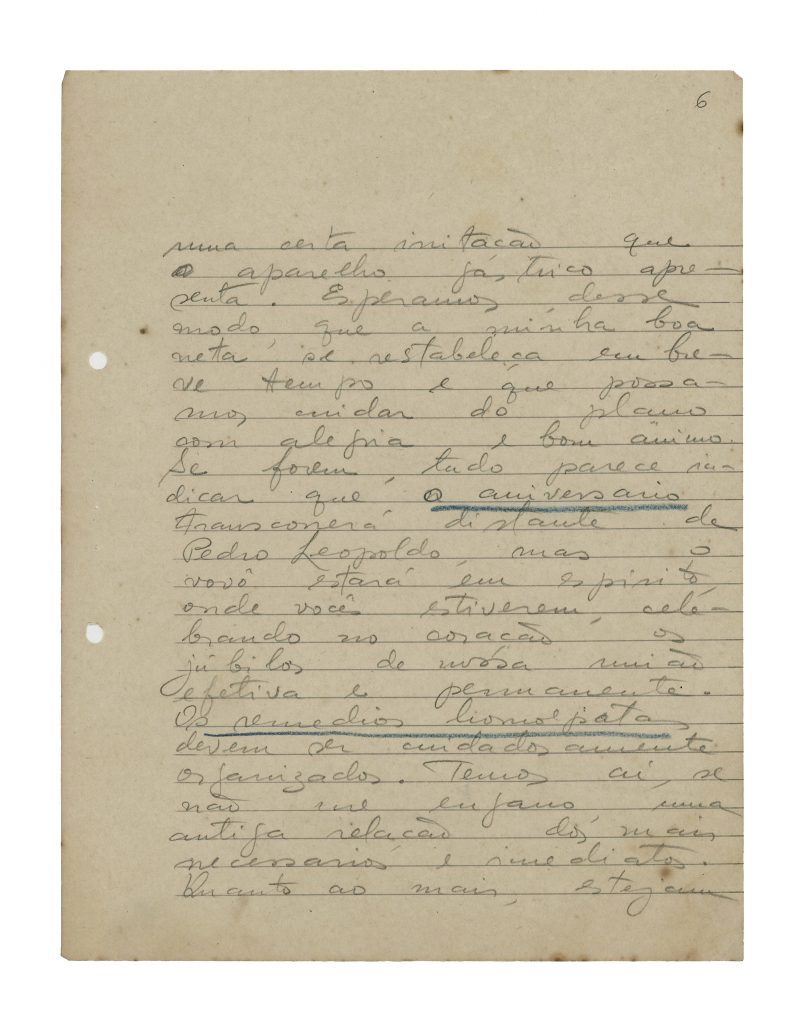 6
uma certa irritação que
o aparelho gástrico apre-
senta. Esperamos, desse
modo, que a minha boa
neta se restabeleça em bre-
ve tempo e que possa-
mos cuidar do plano
com alegria e bom ânimo.
Se forem, tudo parece in-
dicar que o aniversario
transcorrerá distante de
Pedro Leopoldo, mas o
vovô estará em espirito
onde vocês estiverem, cele-
brando no coração os
júbilos de nossa união
efetiva e permanente.
Os remedios homeopatas
devem ser cuidadosamente
organizados. Temos aí, se
não me engano, uma
antiga relação dos mais
necessarios e imediatos.
Quanto ao mais, estejam